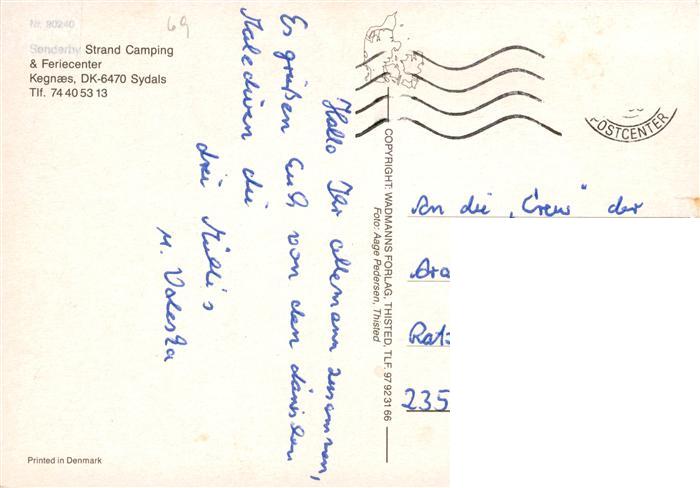 Nr. 90240
69
Sønderby Strand Camping
& Feriecenter
Kegnæs, DK-6470 Sydals
Tlf. 74 40 53 13
Hallo Ihr allemann zusammen,
Es grüßen Euch von den dänischen
Malediven die
drei
u. Valeska
COPYRIGHT: WADMANNS FORLAG, THISTED, TLF. 97 92 31 66
Foto: Aage Pedersen, Thisted
POSTCENTER
An die „Crew“ der
Ara
Rat
235
Printed in Denmark